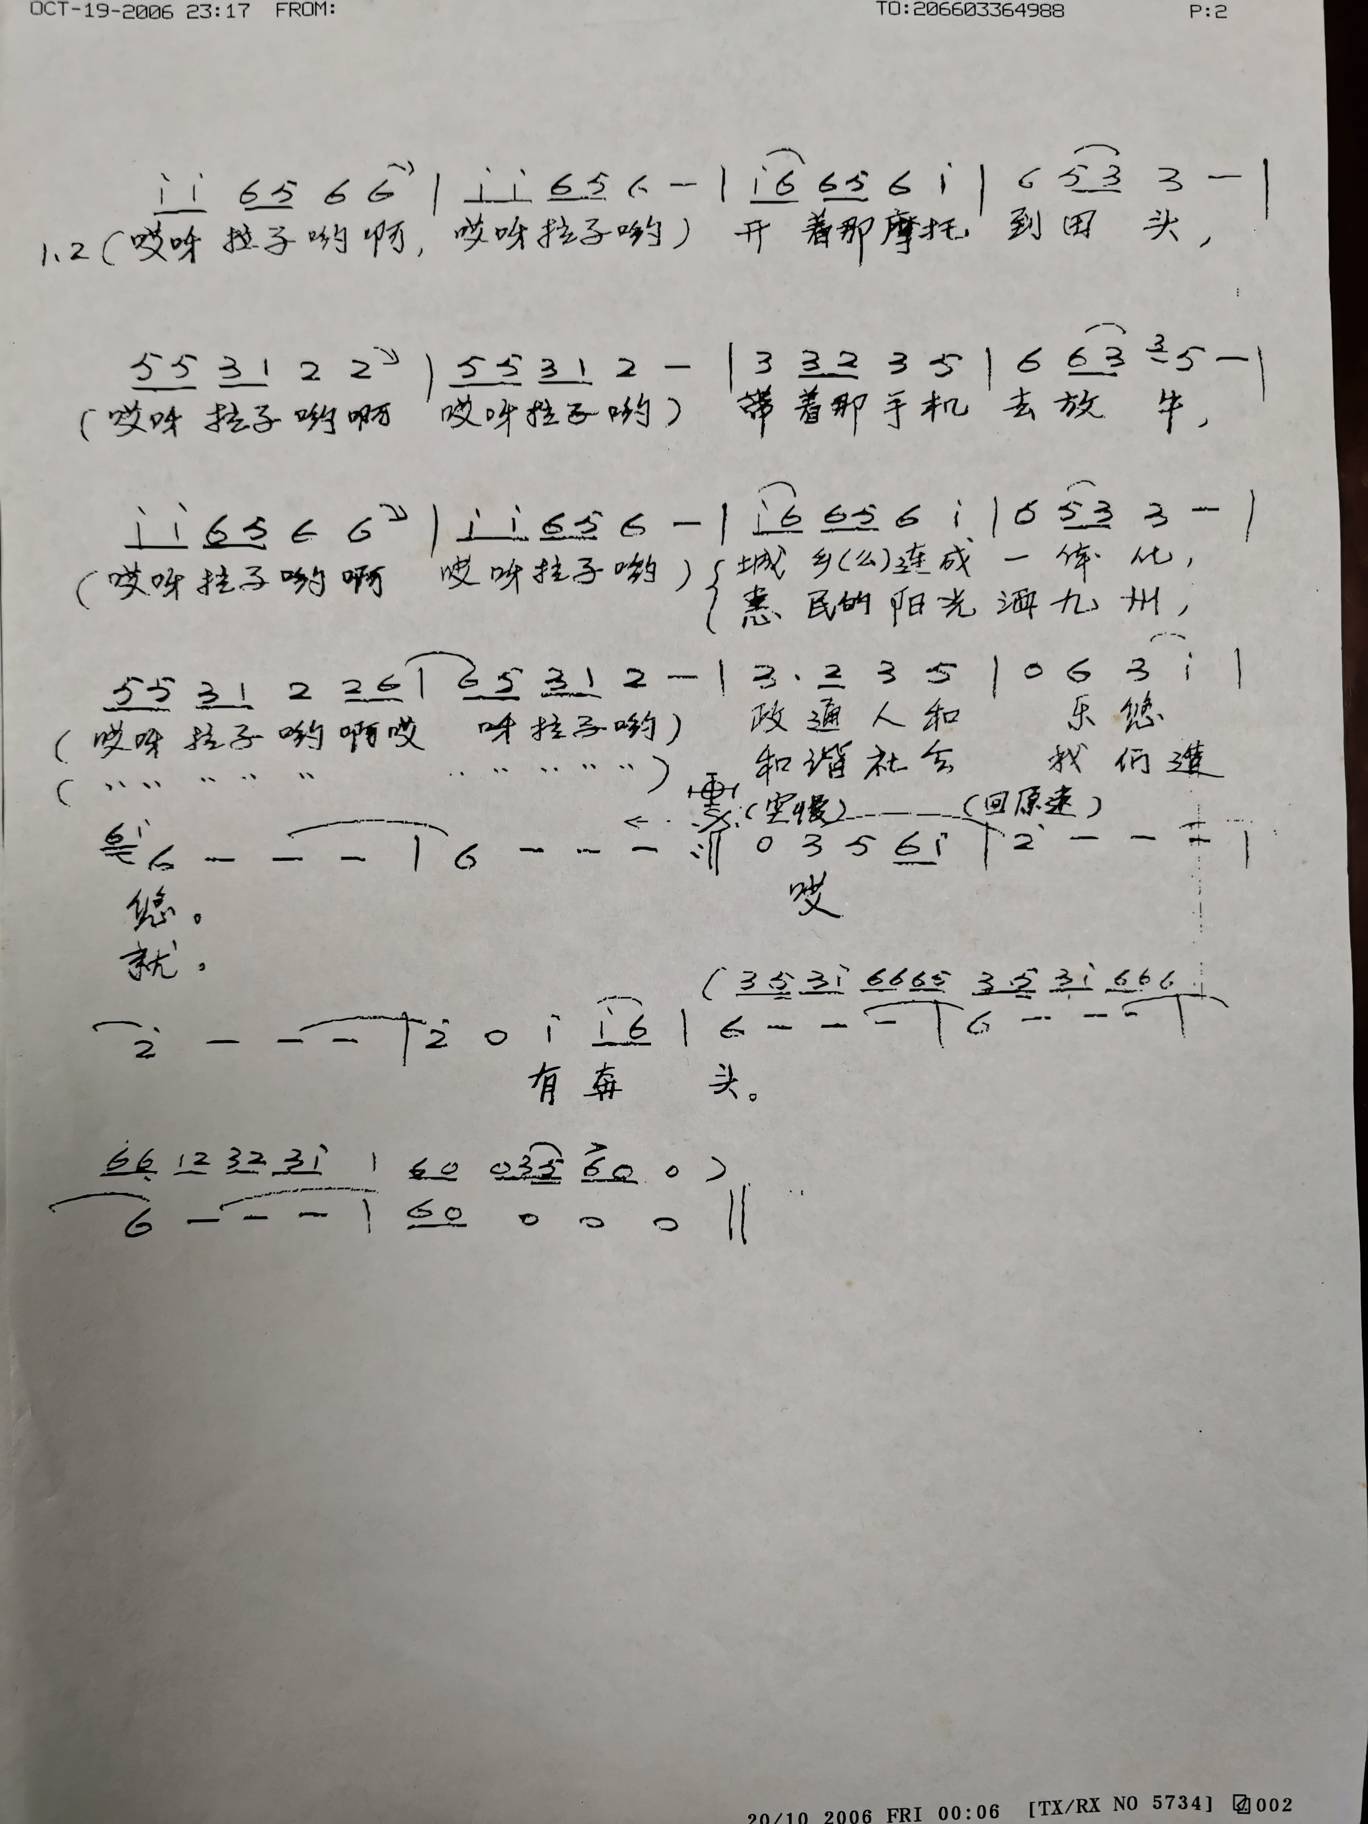 OCT-19-2006 23:17 FROM: TO:206603364988 P:2
i i 6 5 6 6 | i i 6 5 6 - | i 6 6 5 6 i | 6 5 3 3 - |
1、2(哎呀拉子哟啊,哎呀拉子哟) 开着那摩托到田头,
5 5 3 1 2 2 | 5 5 3 1 2 - | 3 3 2 3 5 | 6 6 3 3 5 - |
(哎呀拉子哟啊 哎呀拉子哟) 带着那手机去放牛,
i i 6 5 6 6 | i i 6 5 6 - | i 6 6 5 6 i | 6 5 3 3 - |
(哎呀拉子哟啊 哎呀拉子哟) 城乡(么)连成一体化,
惠民的阳光洒九州,
5 5 3 1 2 2 6 | 6 5 3 1 2 - | 3 . 2 3 5 | 0 6 3 i |
(哎呀拉子哟啊哎 呀拉子哟) 政通人和 乐悠
( " " " " " " " " " " ) 和谐社会 我们造
(突慢) (回原速)
6 i 6 - - - | 6 - - - :‖ 0 3 5 6 i | 2 - - - |
悠。 哎
就。
(3 5 3 i 6 6 6 5 3 5 3 i 6 6 6
2 - - - | 2 0 i i 6 | 6 - - - | 6 - - - |
有奔头。
6 6 1 2 3 2 3 i | 6 0 0 3 5 6 0 0 )
6 - - - | 6 0 0 0 0 ‖
20/10 2006 FRI 00:06 [TX/RX NO 5734] 002